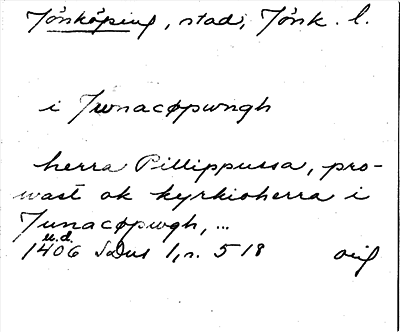 Jönköping, stad, Jönk. l.
i Junacøpwngh
herra Pillippussa, pro-
wast ok kyrkioherra i
Junacøpwgh, ...
u.d.
1406 SDns 1, n. 518 orig